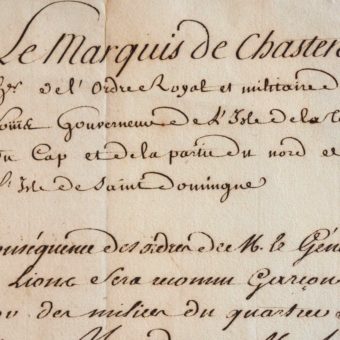 Le Marquis de Chaste
de L'Ordre Royal et militaire d
Gouverneur de L'Isle de la
du Cap et de la partie du nord
L'Isle de Saint domingue
onséquence des ordres de M. le Géné
Lionc Sera reconnu Garçon
des milices du quartier